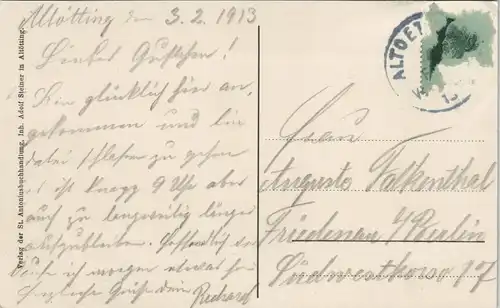 Altötting den 3.2.1913
Liebes Gustchen!
Bin glücklich hier an,
gekommen und bin
dabei schlafen zu gehen
es ist knapp 9 Uhr aber
auch zu langweilig länger
aufzubleiben. Hoffentlich
ich morgen etwas
herzliche Grüße Dein Richard
Frau
Auguste Falkenthal
Friedenau b/Berlin
Südwestkorso 17
ALTOET
Verlag der St. Antoniusbuchhandlung, Inh. Adolf Steiner in Altötting.